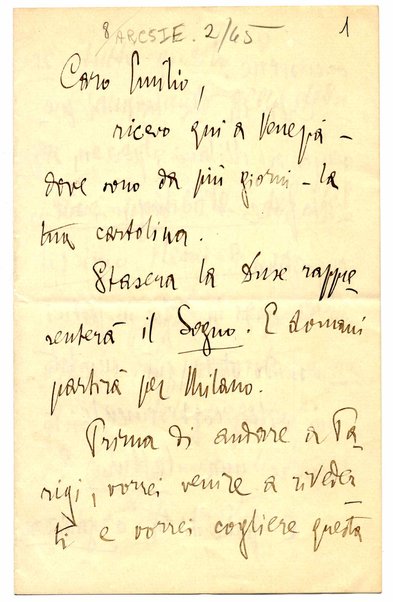 8 ARCSIE. 2/65 1
Caro Emilio,
ricevo qui a Venezia –
dove sono da più giorni – la
tua cartolina.
Stasera la Duse rappre
senterà il Sogno. E domani
partirà per Milano.
Prima di andare a Pa-
rigi, vorrei venire a rivede-
ti e vorrei cogliere questa